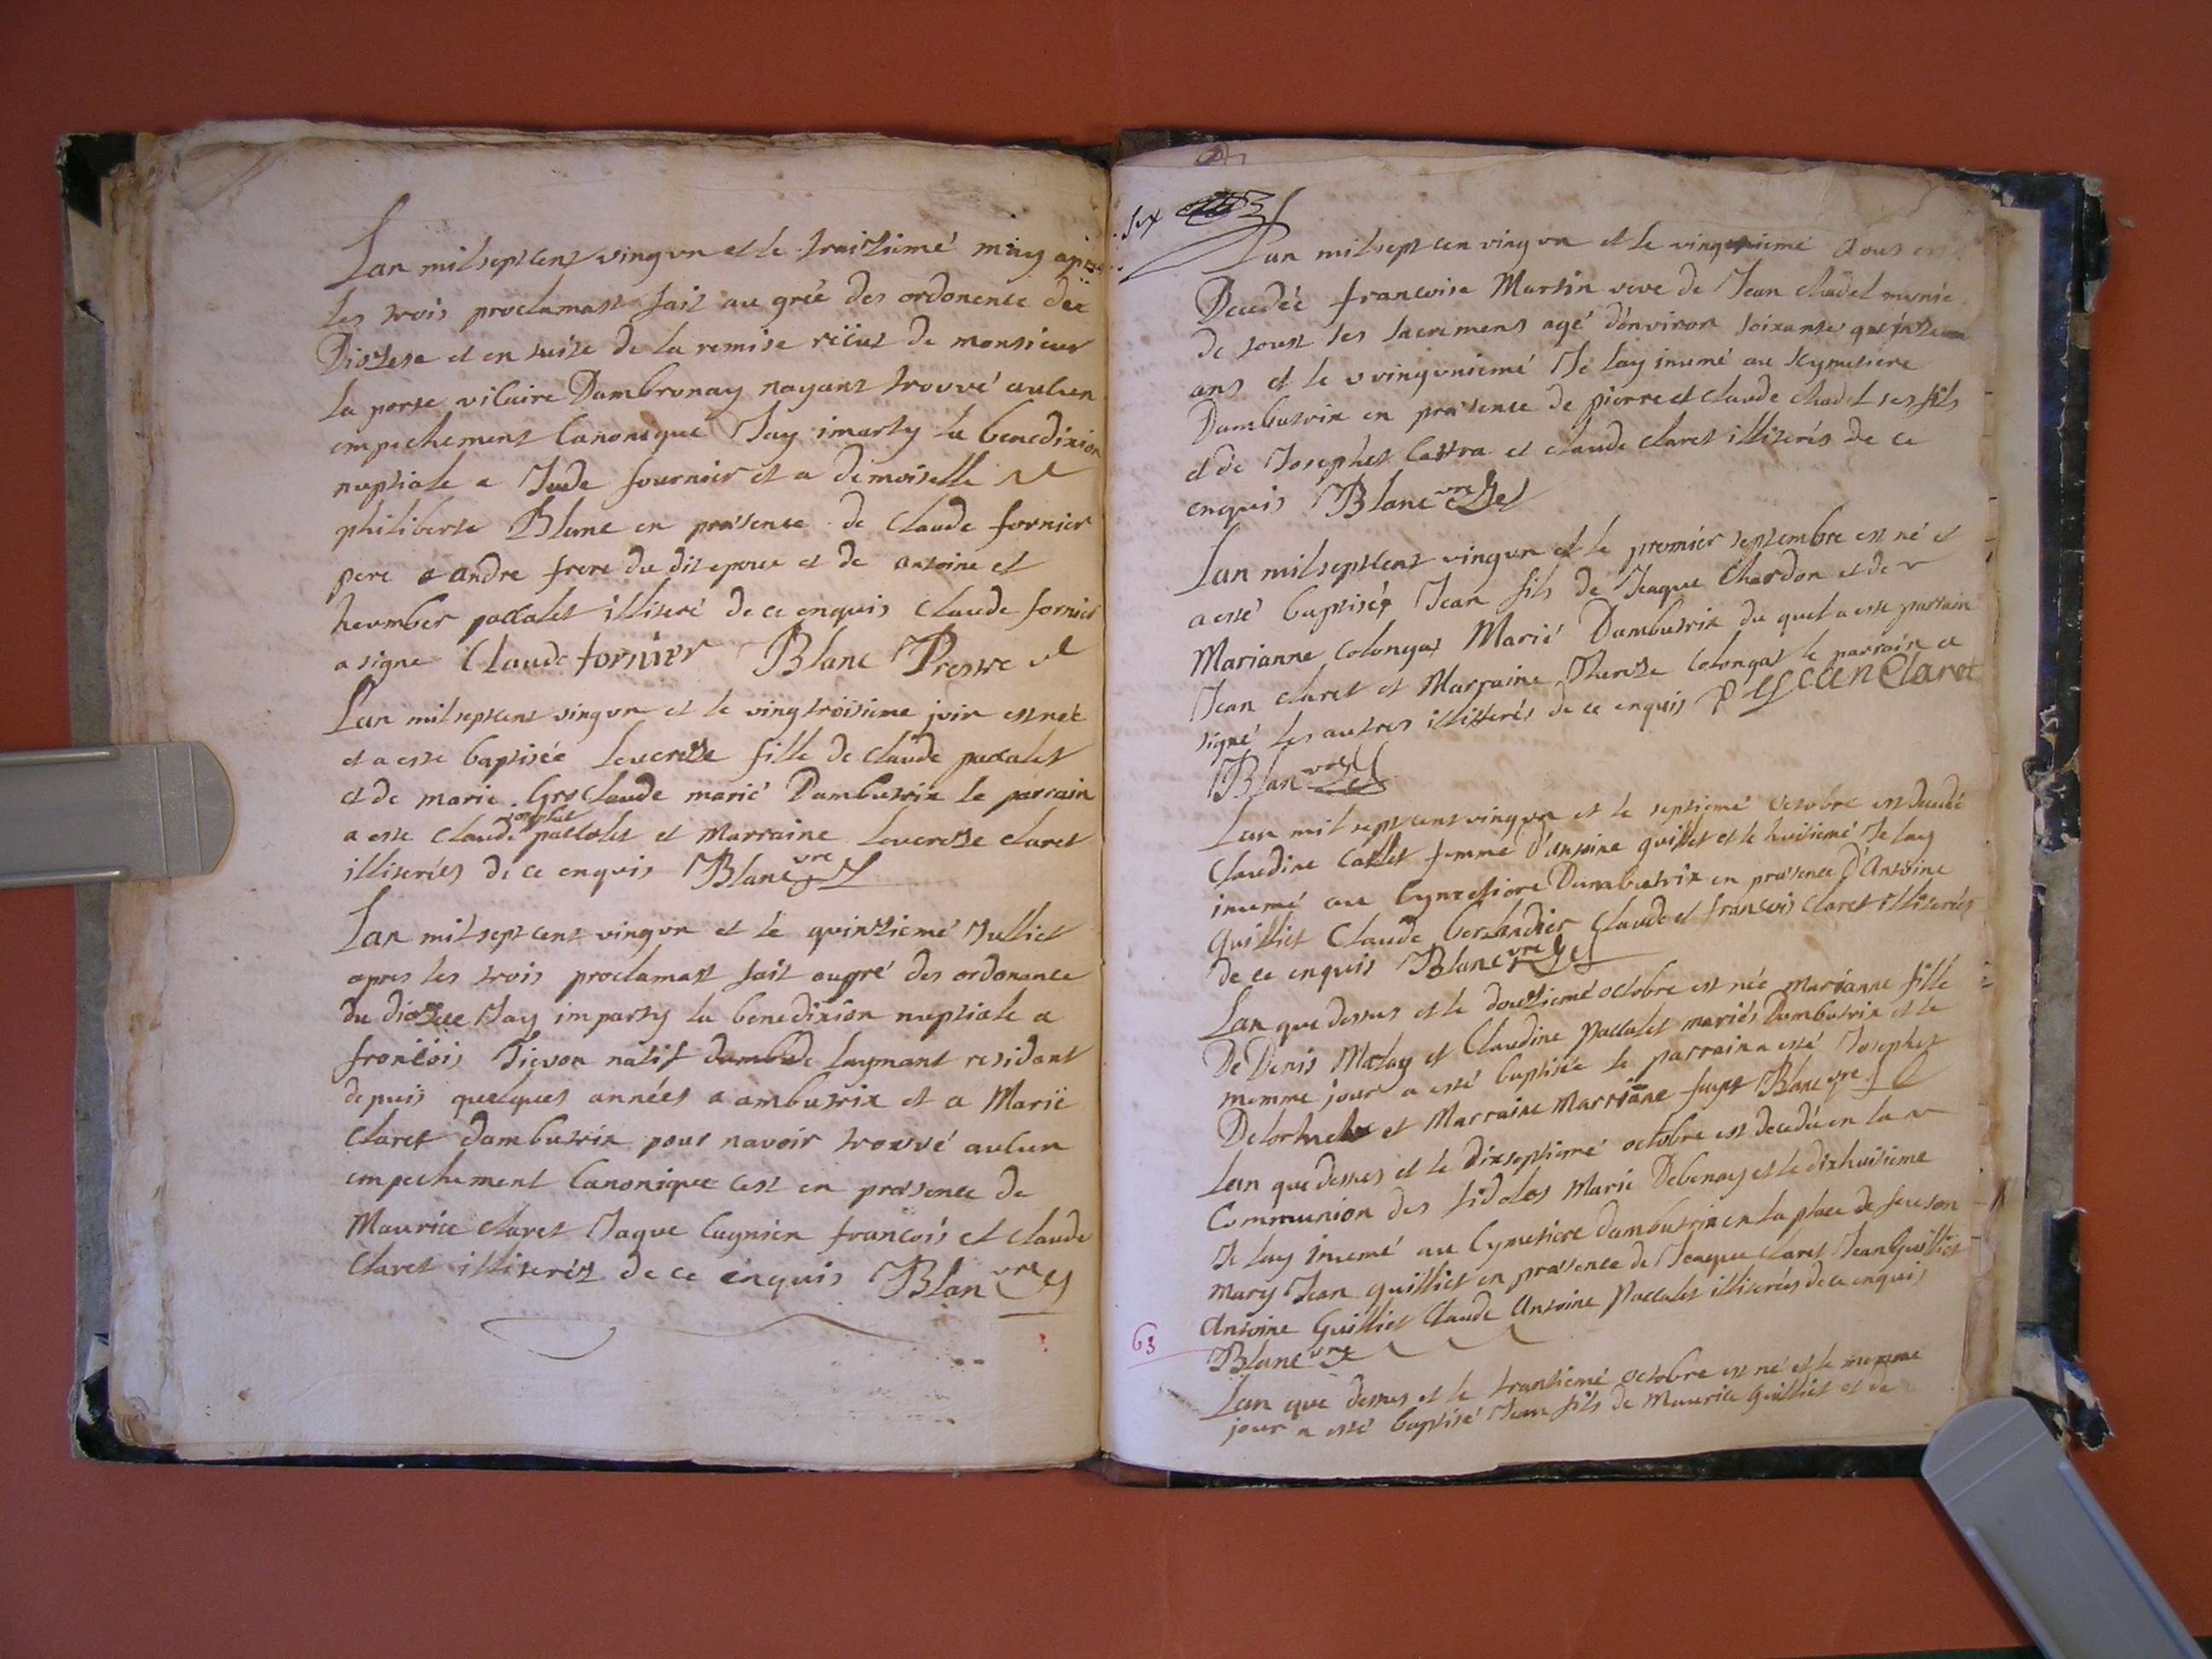 Lan mil sept cent vingun et le traiziemé may apres
les trois proclamast fait au greé des ordonence deu
Diozese et en suite de la remise réçüt de monsieur
la porte vicaire Dambronay nayant trouvé aulcun
empechement Canonique Jay imarty la benedixion
nuptiale a Jude fournier et a demoiselle
philiberte Blanc en præsence de Claude fornier
pere a andre frere du dit epoux et de antoine et
heumber paccalet illiteré de ce enquis Claude fornier
a signe Claude fornier Blanc Prestre
Lan mil sept cent vingun et le vingtroisieme juin est neé
et a esté baptisée leucresse fille de Claude pacalet
et de marie Gros Claude marié Dambutrix le parrain
a este Claude josephet paccalet et Marraine Leucresse Claret
illiterées de ce enquis Blanc vre
Lan mil sept cent vingun et le quinziemé Julliet
apres les trois proclamast fait augré des ordonance
du diozese Jay imparty la benedixion nuptiale a
francois Tievon natif de laymant residant
depuis quelques années a ambutrix et a Marie
Claret dambutrix pour navoir trouvé aulcun
empechement Canonique cest en præsence de
Maurice Claret Jaque Cugnien francois et Claude
Claret illiteréz de ce enquis Blan vre
sex
Lan mil sept cen vingun et le aous est
Decedéé francoise Martin veve de Jean Chadel munie
de toust ses sacremens agé d'environ soixante quinze
ans et le vvingunieme Je lay inumé au scymetiere
Dambutrix en præsence de pierre et Claude Chadel ses fils
et de Josephet Cattra et Claude Claret illiterés de ce
enquis Blanc vre
Lan mil sept cent vingun et le premier septembre est né et
a esté baptiséz Jean fils de Jeaque Chardon et de
Marianne Colongat Marié Dambutrix du quel a esté parrain
Jean Claret et Marraine Thereze Colongat le parrain a
signé les autres illitterés de ce enquis Claret
Blan vre
Lan mil sept cent vingun et le septiemé octobre est decedée
Claudine Catlet femme d'antoine guillet et le huitiemé Je lay
inumé au Cymetiere Dambutrix en præsence D'Antoine
Guilliet Claude berlandier Claude et francois Claret illiterées
de ce enquis Blanc vre
Lan que dessus et le douziemé octobre est née Marianne fille
De Denis Malay et Claudine Paccalet mariés Dambutrix et le
memme jour a esté baptisée le parrain a esté Josephet
et Marraine Marriane Blanc vre
Lan que dessus et le dixseptiemé octobre est decedée en la
Communion des fideles Marie Debenay et le dixhuitieme
Je lay inumé au Cymetiere dambutrix en la place de feu son
mary Jean guilliet en præsence de Jeaque Claret Jean Guilliet
Antoine Guilliet Claude Antoine Paccalet illiterés de ce enquis
63
Blanc vre
Lan que dessus et le trantiemé octobre est né et le memme
jour a esté baptisé Jean fils de Maurice Guilliet et de